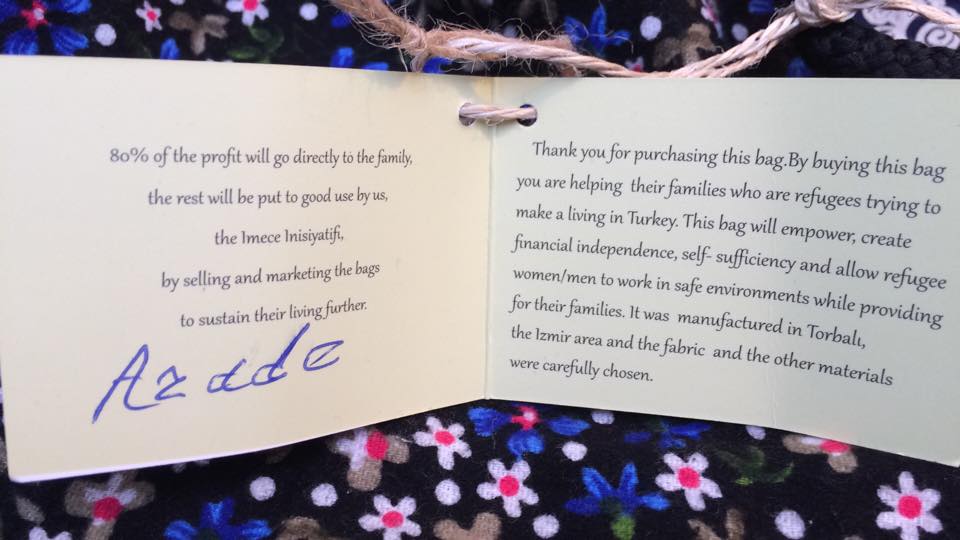 80% of the profit will go directly to the family,
the rest will be put to good use by us,
the Imece Inisiyatifi,
by selling and marketing the bags
to sustain their living further.
Thank you for purchasing this bag.By buying this bag
you are helping their families who are refugees trying to
make a living in Turkey. This bag will empower, create
financial independence, self- sufficiency and allow refugee
women/men to work in safe environments while providing
for their families. It was manufactured in Torbalı,
the Izmir area and the fabric and the other materials
were carefully chosen.